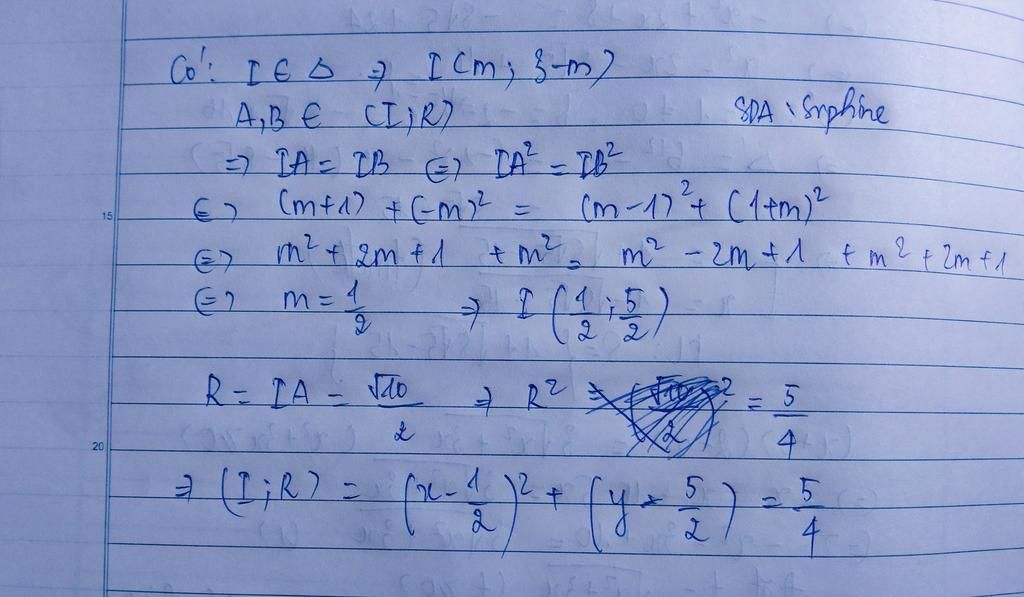 Có: I ∈ Δ ⇒ I(m; 3-m)
A,B ∈ (I;R)
SDA : Srphine
⇒ IA = IB ⇔ IA² = IB²
15
⇔ (m+1) + (-m)² = (m-1)² + (1+m)²
⇔ m² + 2m + 1 + m² = m² - 2m + 1 + m² + 2m + 1
⇔ m = 1/2 ⇒ I (1/2 ; 5/2)
R = IA = √10/2 ⇒ R² = 5/4
20
⇒ (I;R) = (x - 1/2)² + (y - 5/2) = 5/4